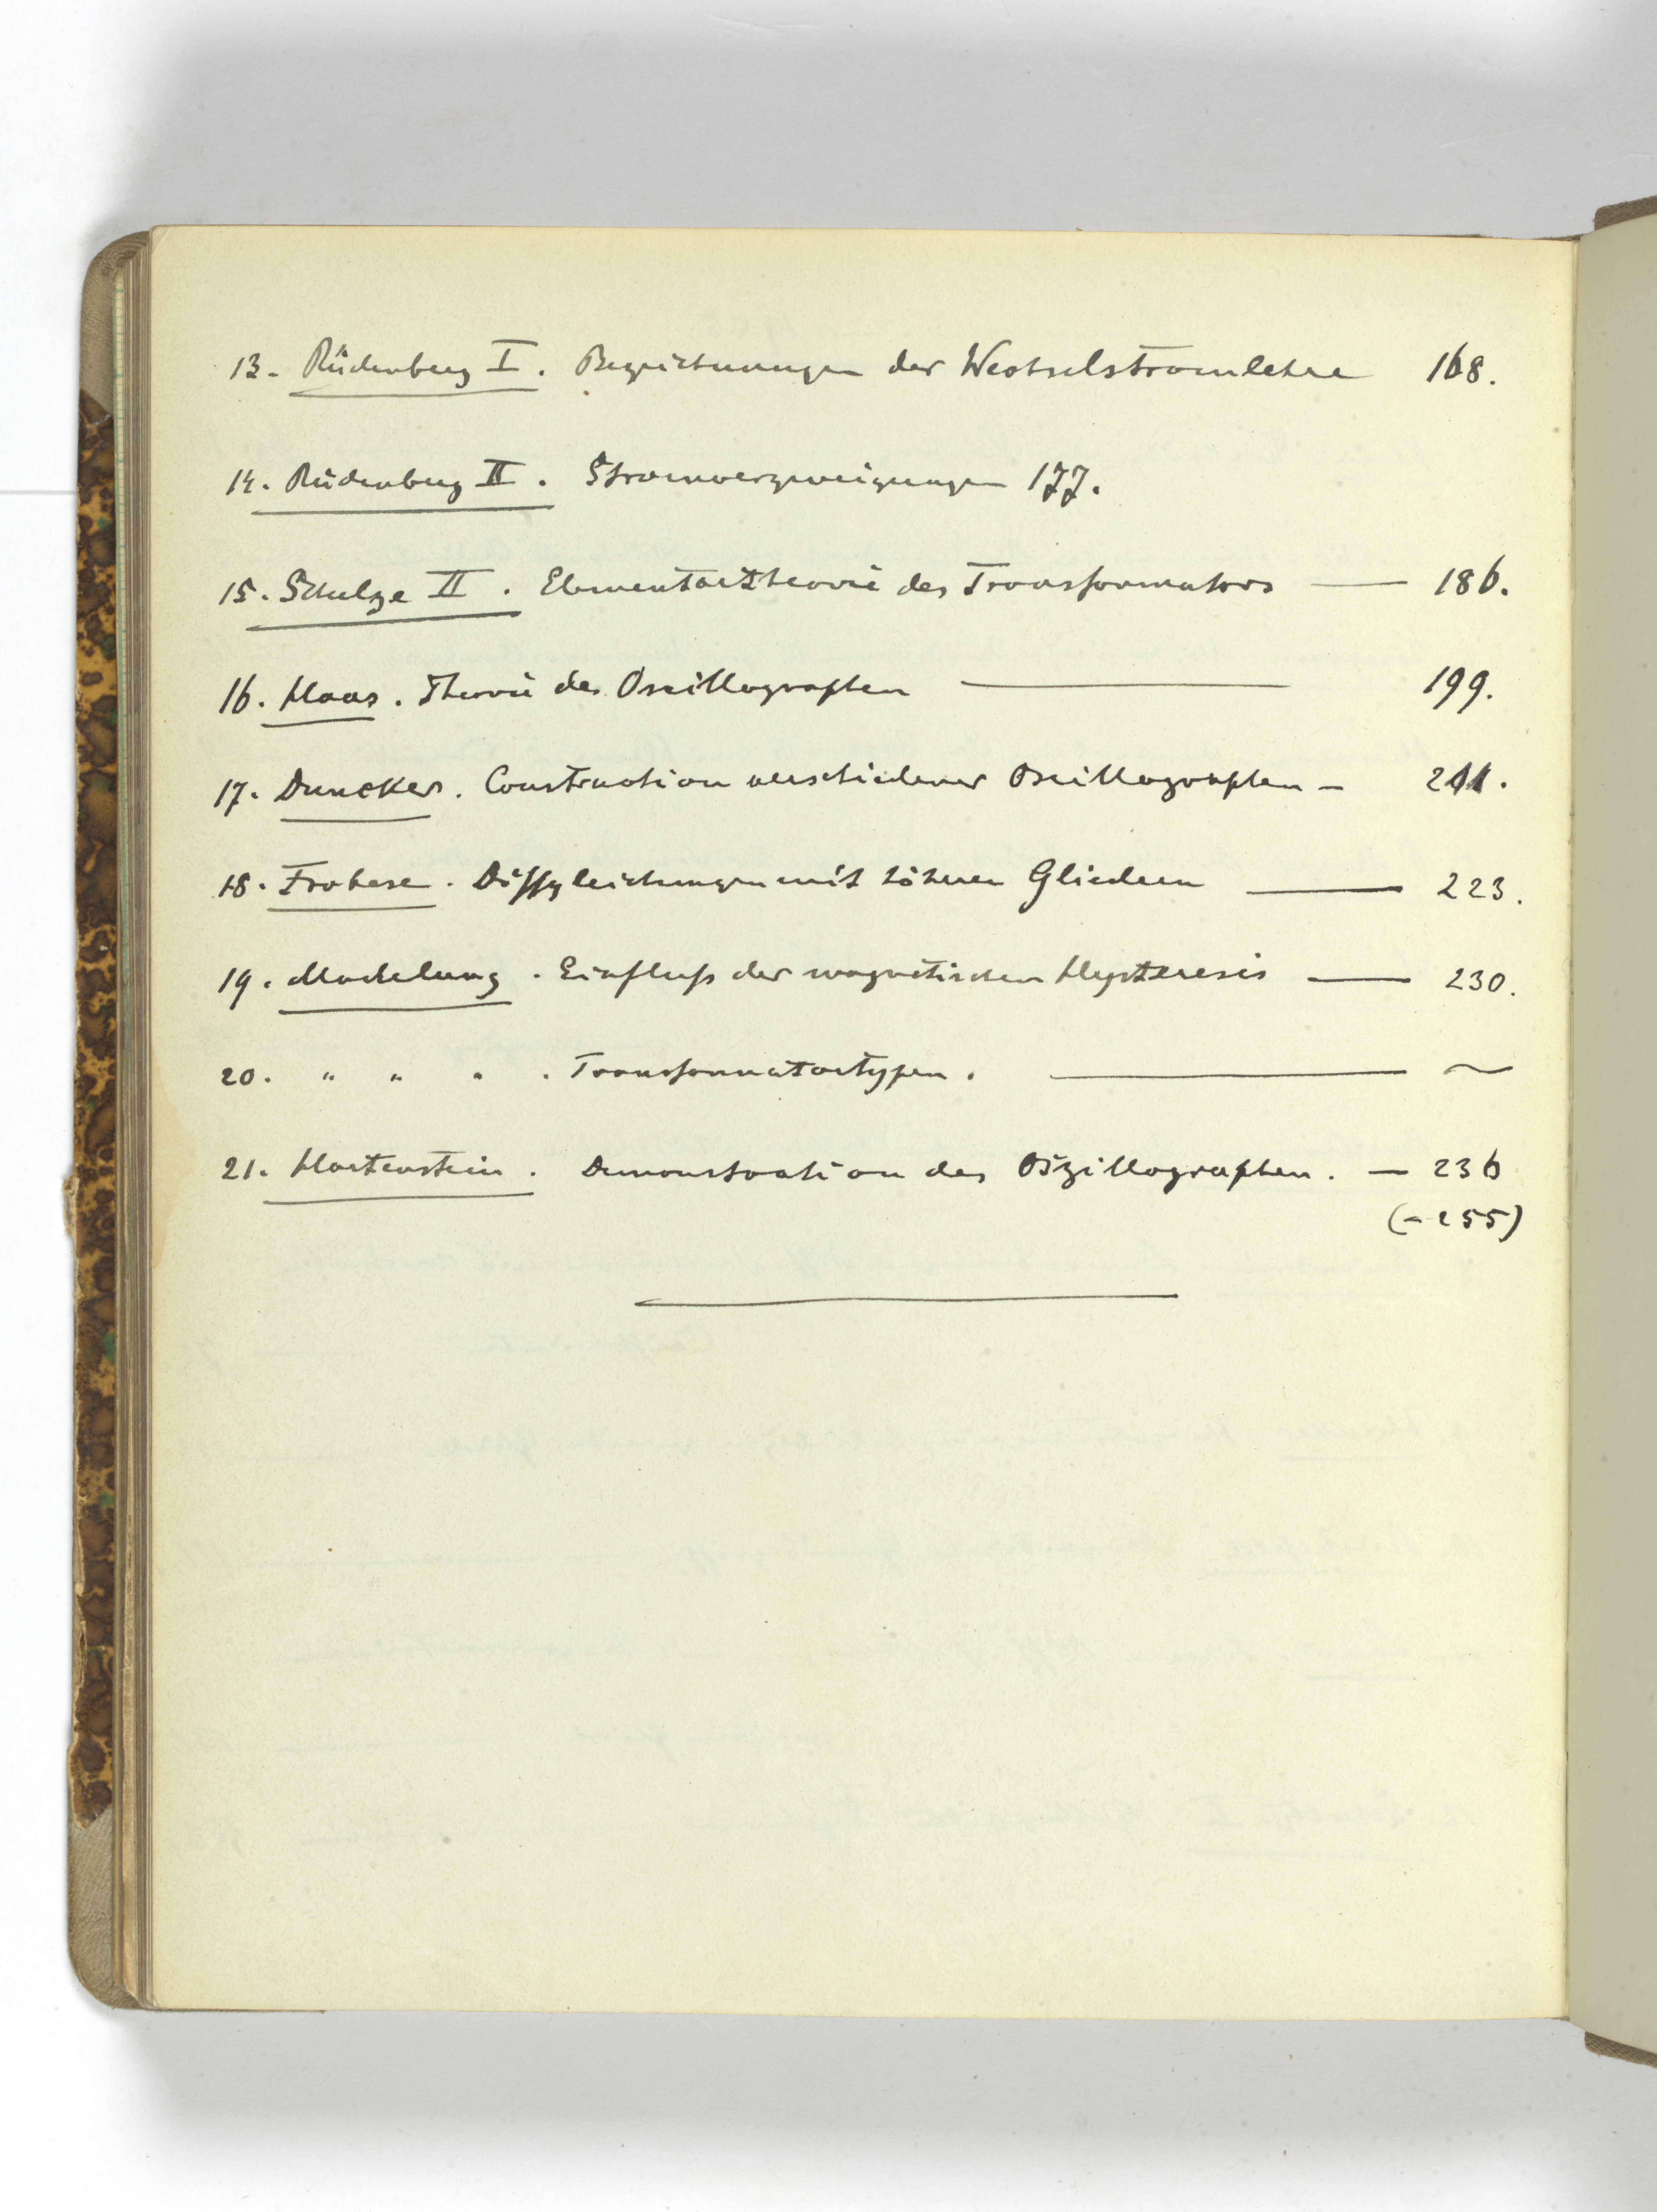 13. Rüdenberg I. Bezeichnungen der Wechselstromlehre 168.
14. Rüdenberg II. Stromverzweigungen 177.
15. Schulze II. Elementartheorie des Transformators — 186.
16. Haas. Theorie des Oscillographen — 199.
17. Duncker. Construction verschiedener Oscillographen — 211.
18. Frohese. Diffgleichungen mit höheren Gliedern — 223.
19. Madelung. Einfluß der magnetischen Hysteresis — 230.
20. " " " . Transformatortypen. — ~
21. Hartenstein. Demonstration des Oszillographen. — 236
(- 255)